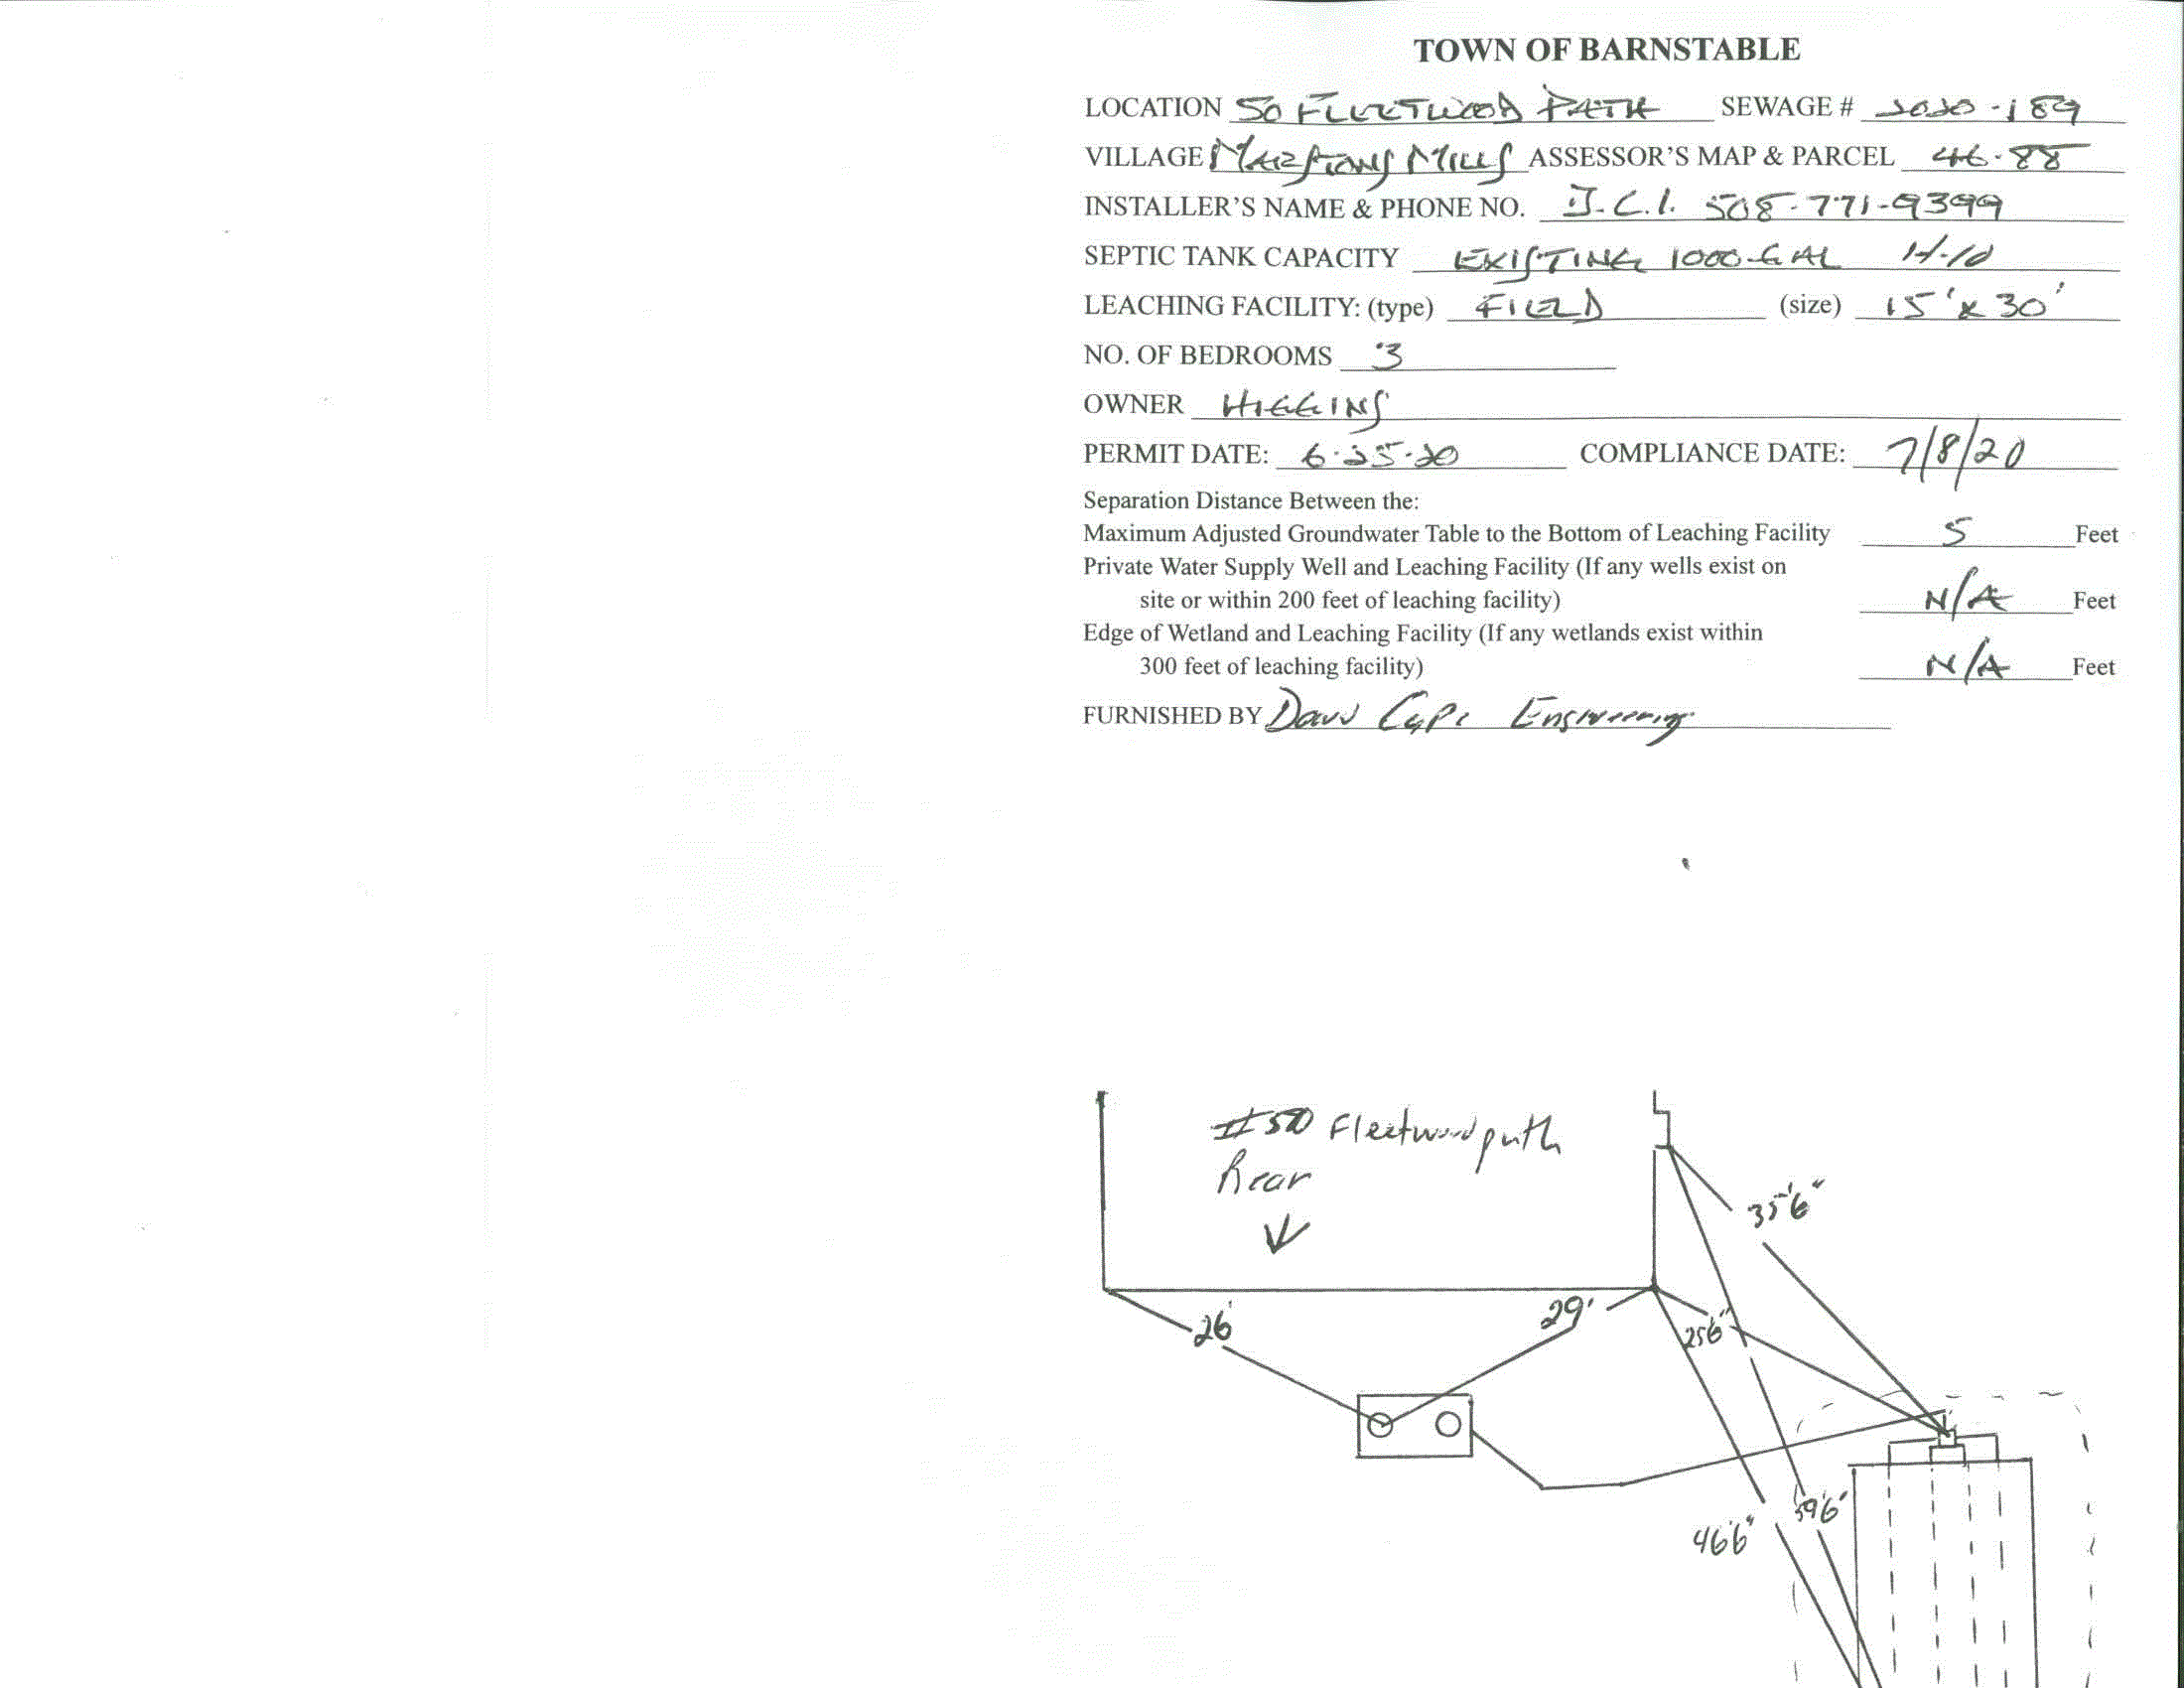 TOWN OF BARNSTABLE
LOCATION 50 FLEETWOOD PATH SEWAGE # 2020-189
VILLAGE MARSTONS MILLS ASSESSOR'S MAP & PARCEL 46-88
INSTALLER'S NAME & PHONE NO. J.C.I. 508-771-9399
SEPTIC TANK CAPACITY EXISTING 1000-GAL H-10
LEACHING FACILITY: (type) FIELD (size) 15' x 30'
NO. OF BEDROOMS 3
OWNER HIGGINS
PERMIT DATE: 6-25-20 COMPLIANCE DATE: 7/8/20
Separation Distance Between the:
Maximum Adjusted Groundwater Table to the Bottom of Leaching Facility 5 Feet
Private Water Supply Well and Leaching Facility (If any wells exist on
site or within 200 feet of leaching facility) N/A Feet
Edge of Wetland and Leaching Facility (If any wetlands exist within
300 feet of leaching facility) N/A Feet
FURNISHED BY Down Cape Engineering
#50 Fleetwood path
Rear
35'6"
26'
29'
25'6"
46'6"